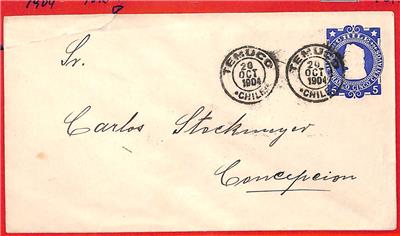 1904
Sr.
TEMUCO
20
OCT
1904
*CHILE*
TEMUCO
20
OCT
1904
*CHILE*
CINCO CENTAVOS
5 5
Carlos Stockmeyer
Concepcion